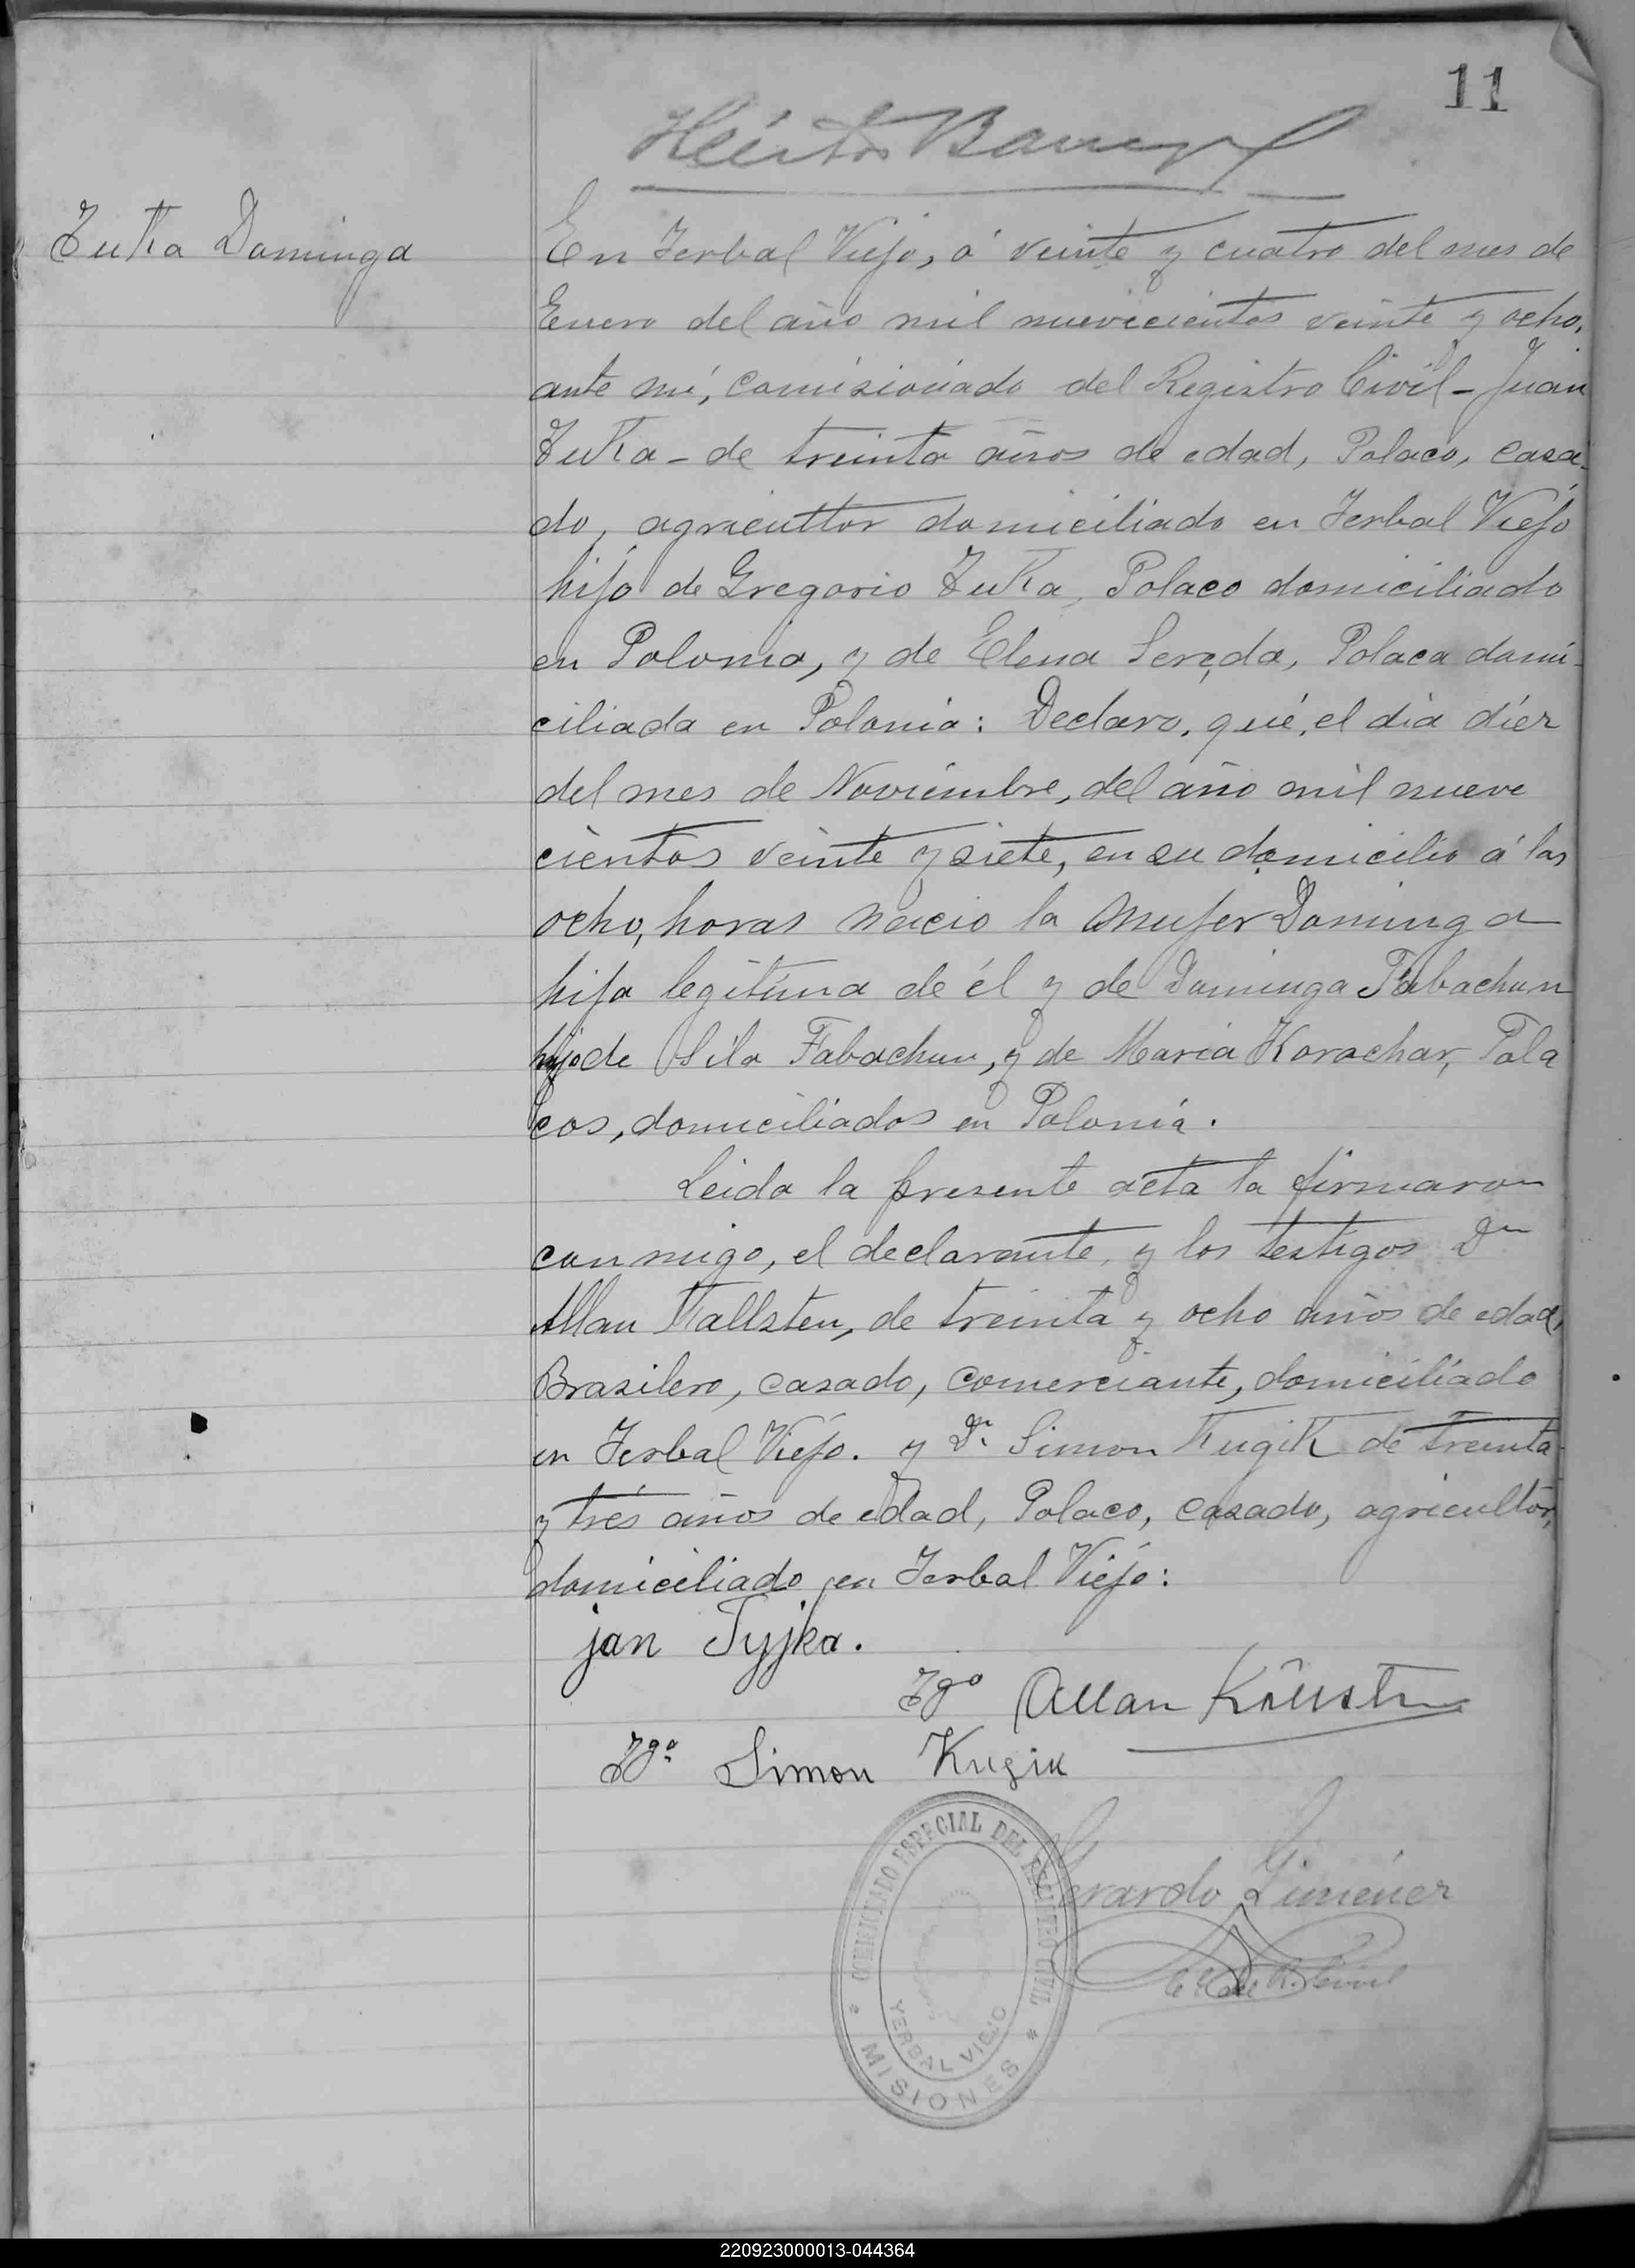 11
Tuka Dominga
En Yerbal Viejo, á veinte y cuatro del mes de
Enero del año mil nuevecientos veinte y ocho,
ante mí, comisionado del Registro Civil - Juan
Tuka - de treinta años de edad, Polaco, casa-
do, agricultor domiciliado en Yerbal Viejo
hijo de Gregorio Tuka, Polaco domiciliado
en Polonia, y de Elena Sereda, Polaca domi-
ciliada en Polonia: Declaro, qué, el dia diez
del mes de Noviembre, del año mil nueve
cientos veinte y siete, en su domicilio á las
ocho, horas nacio la mujer Dominga
hija legitima de él y de Dominga Tabachun
hija de Sila Tabachun, y de Maria Korachar, Pola
cos, domiciliados en Polonia.
Leida la presente acta la firmaron
conmigo, el declarante, y los testigos Dn
Allan Kallsten, de treinta y ocho años de edad,
Brasilero, casado, comerciante, domiciliado
en Yerbal Viejo. y Dn Simon Kugik de treinta
y trés años de edad, Polaco, casado, agricultor,
domiciliado en Yerbal Viejo:
jan Tyjka.
Tgo Allan
Tgo Simon Kugik
COMISIONADO ESPECIAL DEL REGISTRO CIVIL
Gerardo Giménez
YERBAL VIEJO
* MISIONES *
220923000013-044364